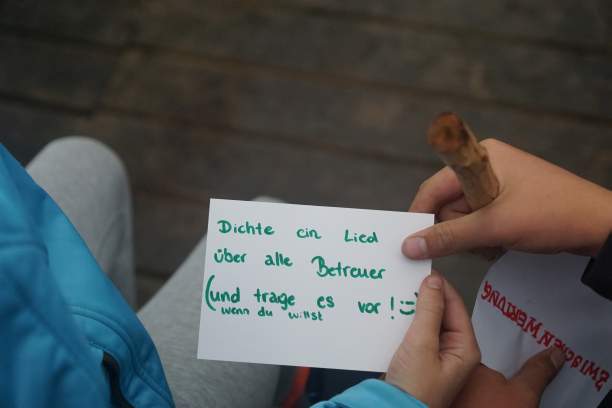 Dichte ein Lied
über alle Betreuer
(und trage es vor! :-)
wenn du willst
ZWISCHENWERTUNG